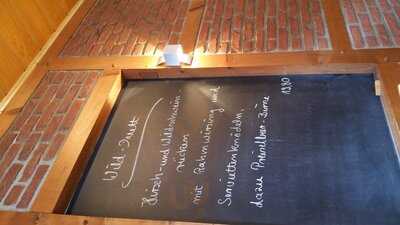 Wild-Duett
Hirsch- und Wildschwein-
rücken
mit Rahmwirsing und
Serviettenknödeln,
dazu Preiselbeer-Birne
19,80